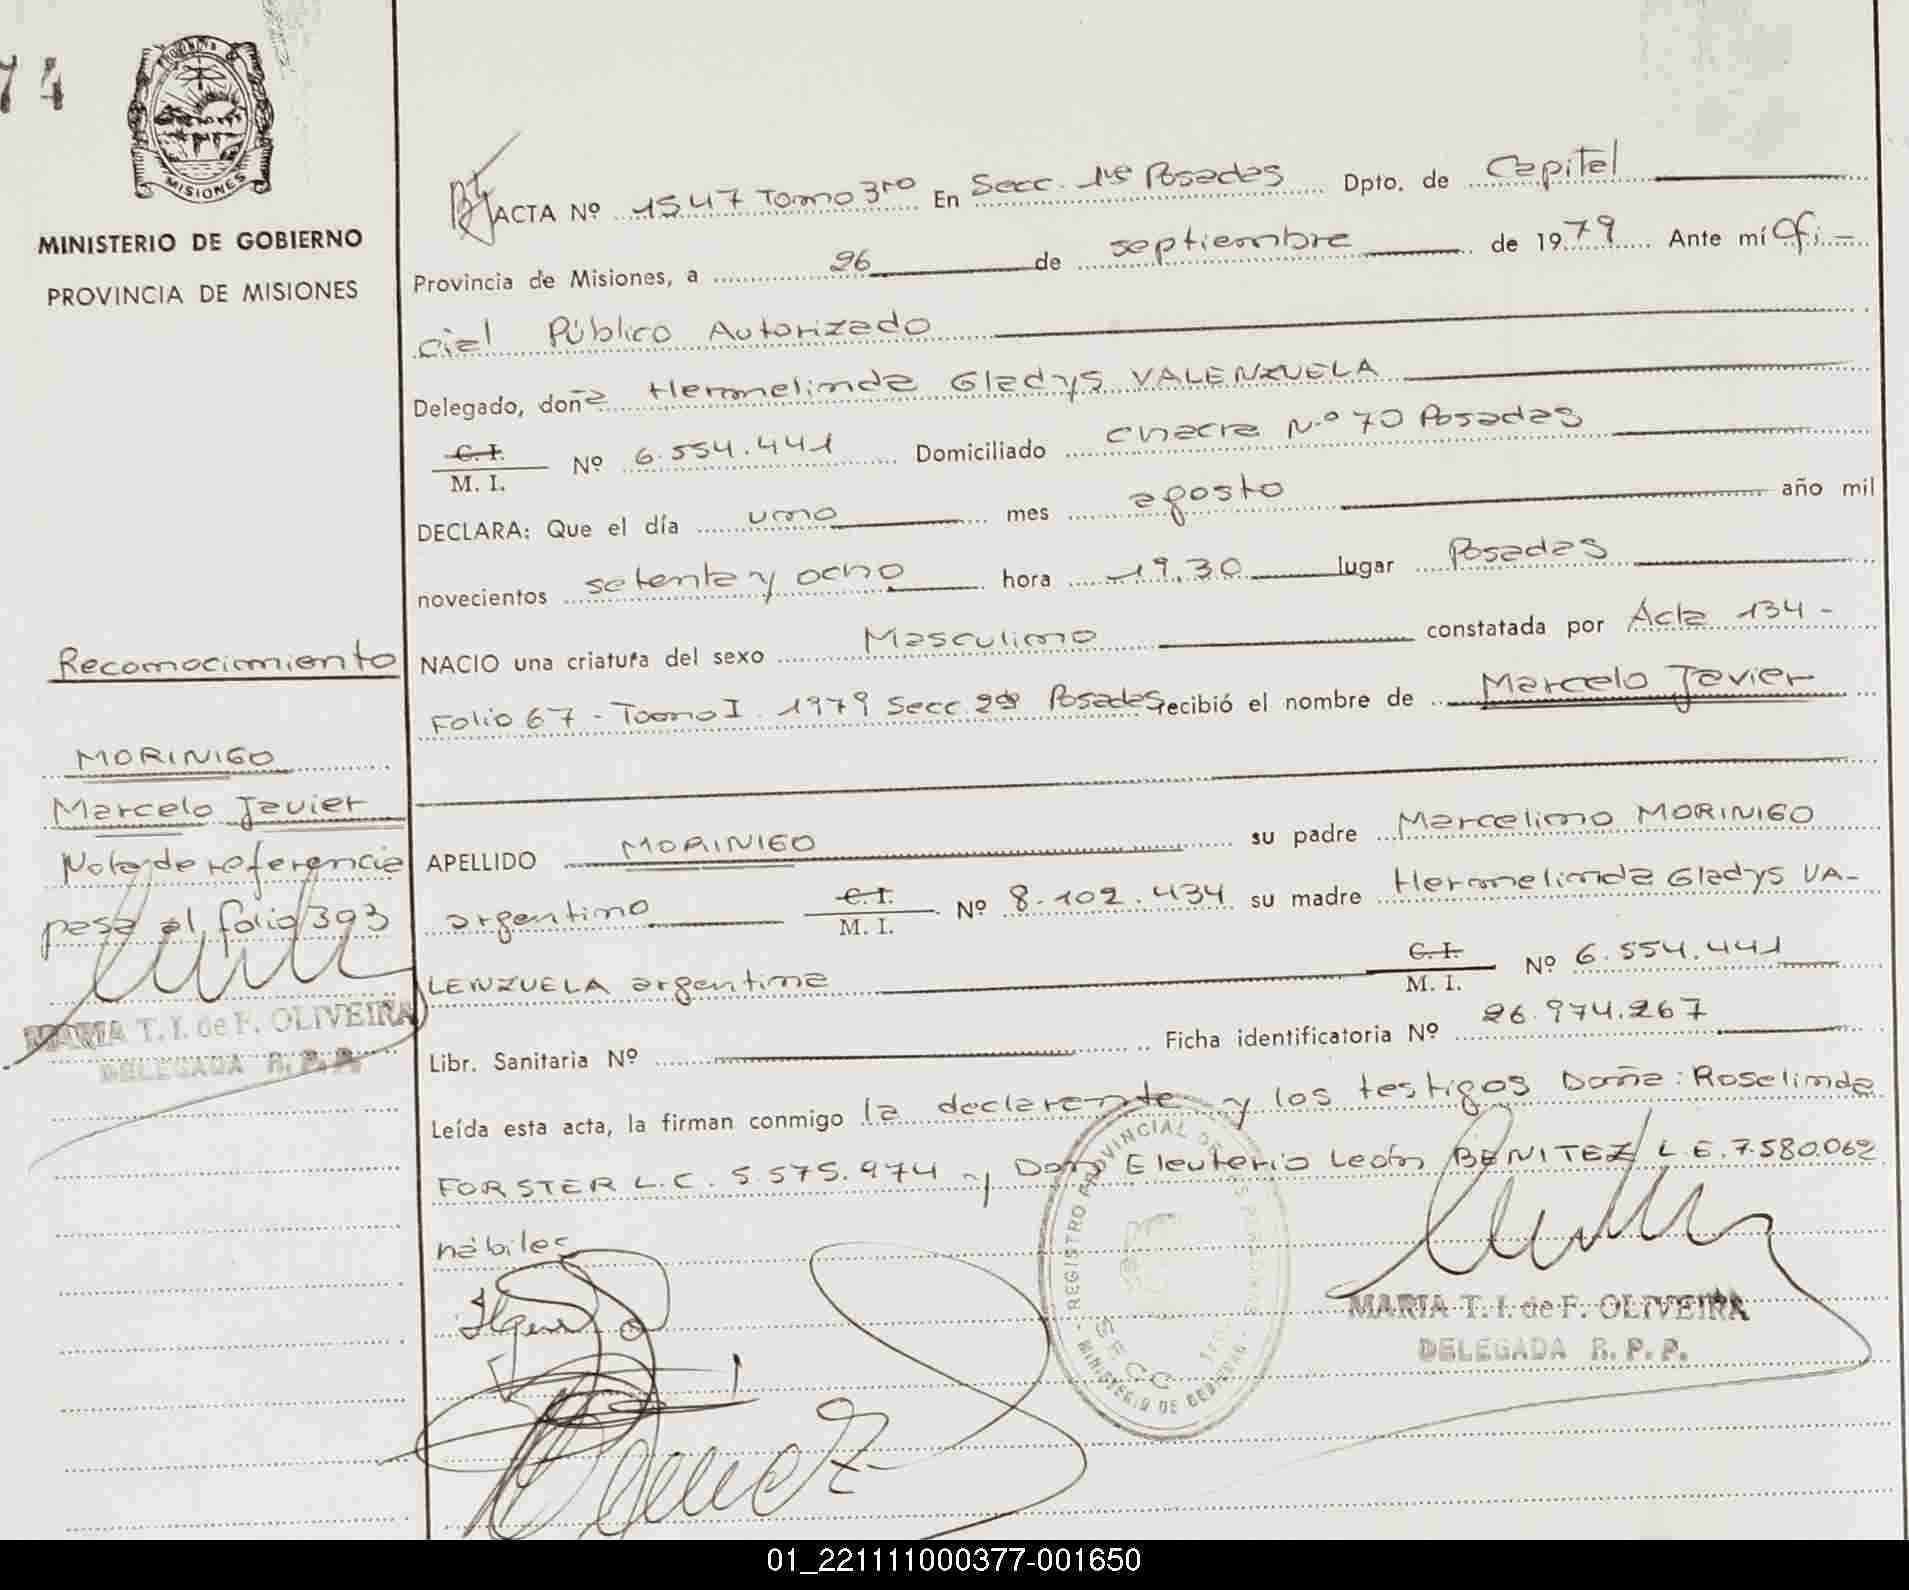 74
PROVINCIA
MISIONES
MINISTERIO DE GOBIERNO
PROVINCIA DE MISIONES
Reconocimiento
MORINIGO
Marcelo Javier
Nota de referencia
pasa al folio 393
MARIA T. I. de F. OLIVEIRA
DELEGADA R. P. P.
ACTA Nº 1547 Tomo 3ro En Secc. 1ª Posadas Dpto. de Capital
Provincia de Misiones, a 26 de septiembre de 1979 Ante mí Ofi-
cial Público Autorizado
Delegado, doña Hermelinda Gladys VALENZUELA
C. I.
M. I. Nº 6.554.441 Domiciliado chacra Nº 70 Posadas
DECLARA: Que el día uno mes agosto año mil
novecientos setenta y ocho hora 19,30 lugar Posadas
NACIO una criatura del sexo Masculino constatada por Acta 134-
Folio 67 - Tomo I. 1979 Secc. 2da Posadas recibió el nombre de Marcelo Javier
APELLIDO MORINIGO su padre Marcelino MORINIGO
argentino C. I. M. I. Nº 8.102.434 su madre Hermelinda Gladys VA-
LENZUELA argentina C. I. M. I. Nº 6.554.441
Libr. Sanitaria Nº Ficha identificatoria Nº 26.974.267
Leída esta acta, la firman conmigo la declarante y los testigos Doña: Roselinda
FORSTER L.C. 5.575.974 y Don Eleuterio León BENITEZ L.E. 7.580.062
hábiles
REGISTRO PROVINCIAL DE LAS PERSONAS
SECC
MINISTERIO DE GOBIERNO
MARIA T. I. de F. OLIVEIRA
DELEGADA R. P. P.
01_221111000377-001650